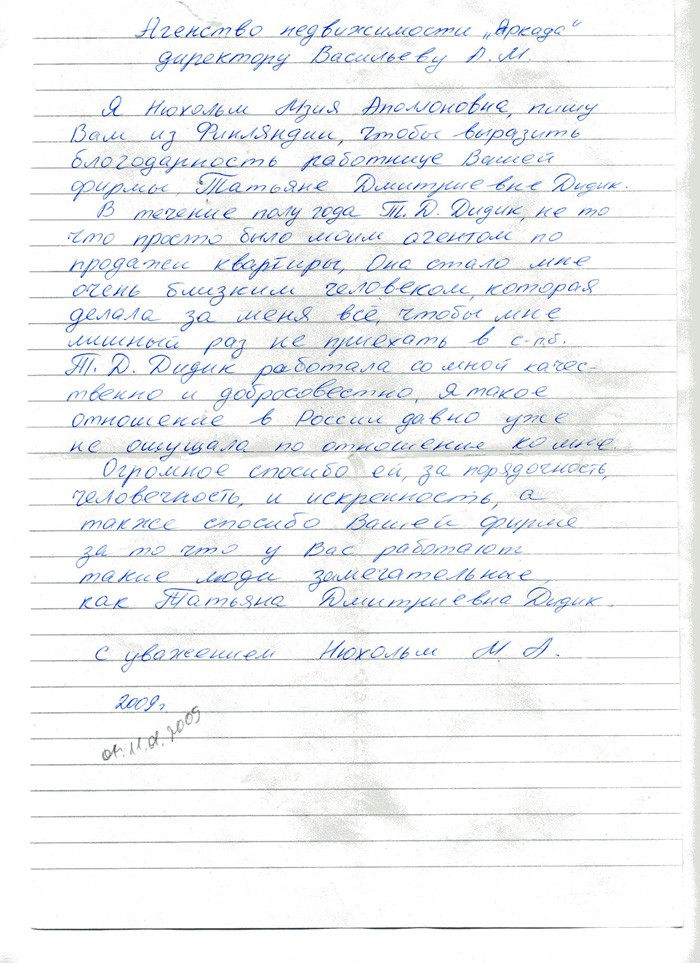 Агенство недвижимости „Аркада“
директору Васильеву А. М.
Я Нюхольм Мзия Апомоновна, пишу
Вам из Финляндии, чтобы выразить
благодарность работнице Вашей
фирмы, Татьяне Дмитриевне Дидик.
В течение полу года Т. Д. Дидик, не то
что просто было моим агентом по
продажи квартиры, Она стало мне
очень близким человеком, которая
делала за меня всё, чтобы мне
лишный раз не приехать в с-пб.
Т. Д. Дидик работала со мной качес-
твенно и добросовестно, я такое
отношение в России давно уже
не ощущала по отношение ко мне.
Огромное спосибо ей, за порядочность,
человечность, и искренность, а
также спосибо Вашей фирме
за то что у Вас работают
такие люди замечательные,
как Татьяна Дмитриевна Дидик.
С уважением Нюхольм М. А.
2009г.
от. 11. 2009